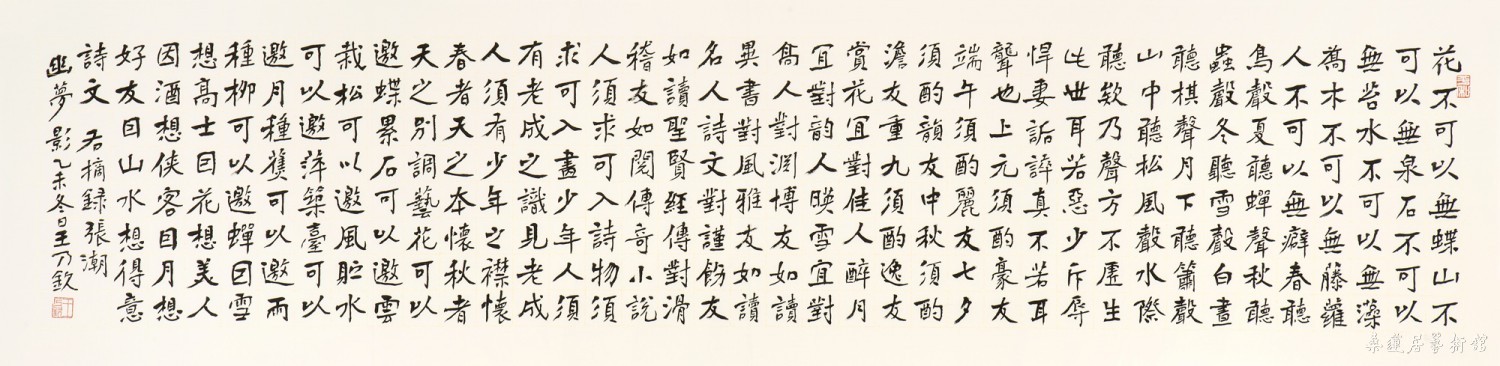 花不可以無蝶山不
可以無泉石不可以
無苔水不可以無藻
喬木不可以無藤蘿
人不可以無癖春聽
鳥聲夏聽蟬聲秋聽
蟲聲冬聽雪聲白晝
聽棋聲月下聽簫聲
山中聽松風聲水際
聽欸乃聲方不虛生
此世耳若惡少斥辱
悍妻詬誶真不若耳
聾也上元須酌豪友
端午須酌麗友七夕
須酌韻友中秋須酌
澹友重九須酌逸友
賞花宜對佳人醉月
宜對韵人映雪宜對
高人對淵博友如讀
異書對風雅友如讀
名人詩文對謹飭友
如讀聖賢經傳對滑
稽友如閱傳奇小說
人須求可入詩物須
求可入畫少年人須
有老成之識見老成
人須有少年之襟懷
春者天之本懷秋者
天之別調藝花可以
邀蝶累石可以邀雲
栽松可以邀風貯水
可以邀萍築臺可以
邀月種蕉可以邀雨
種柳可以邀蟬因雪
想高士因花想美人
因酒想俠客因月想
好友因山水想得意
詩文 右摘録張潮
幽夢影 乙未冬日王乃欽
桑蓮居藝術館